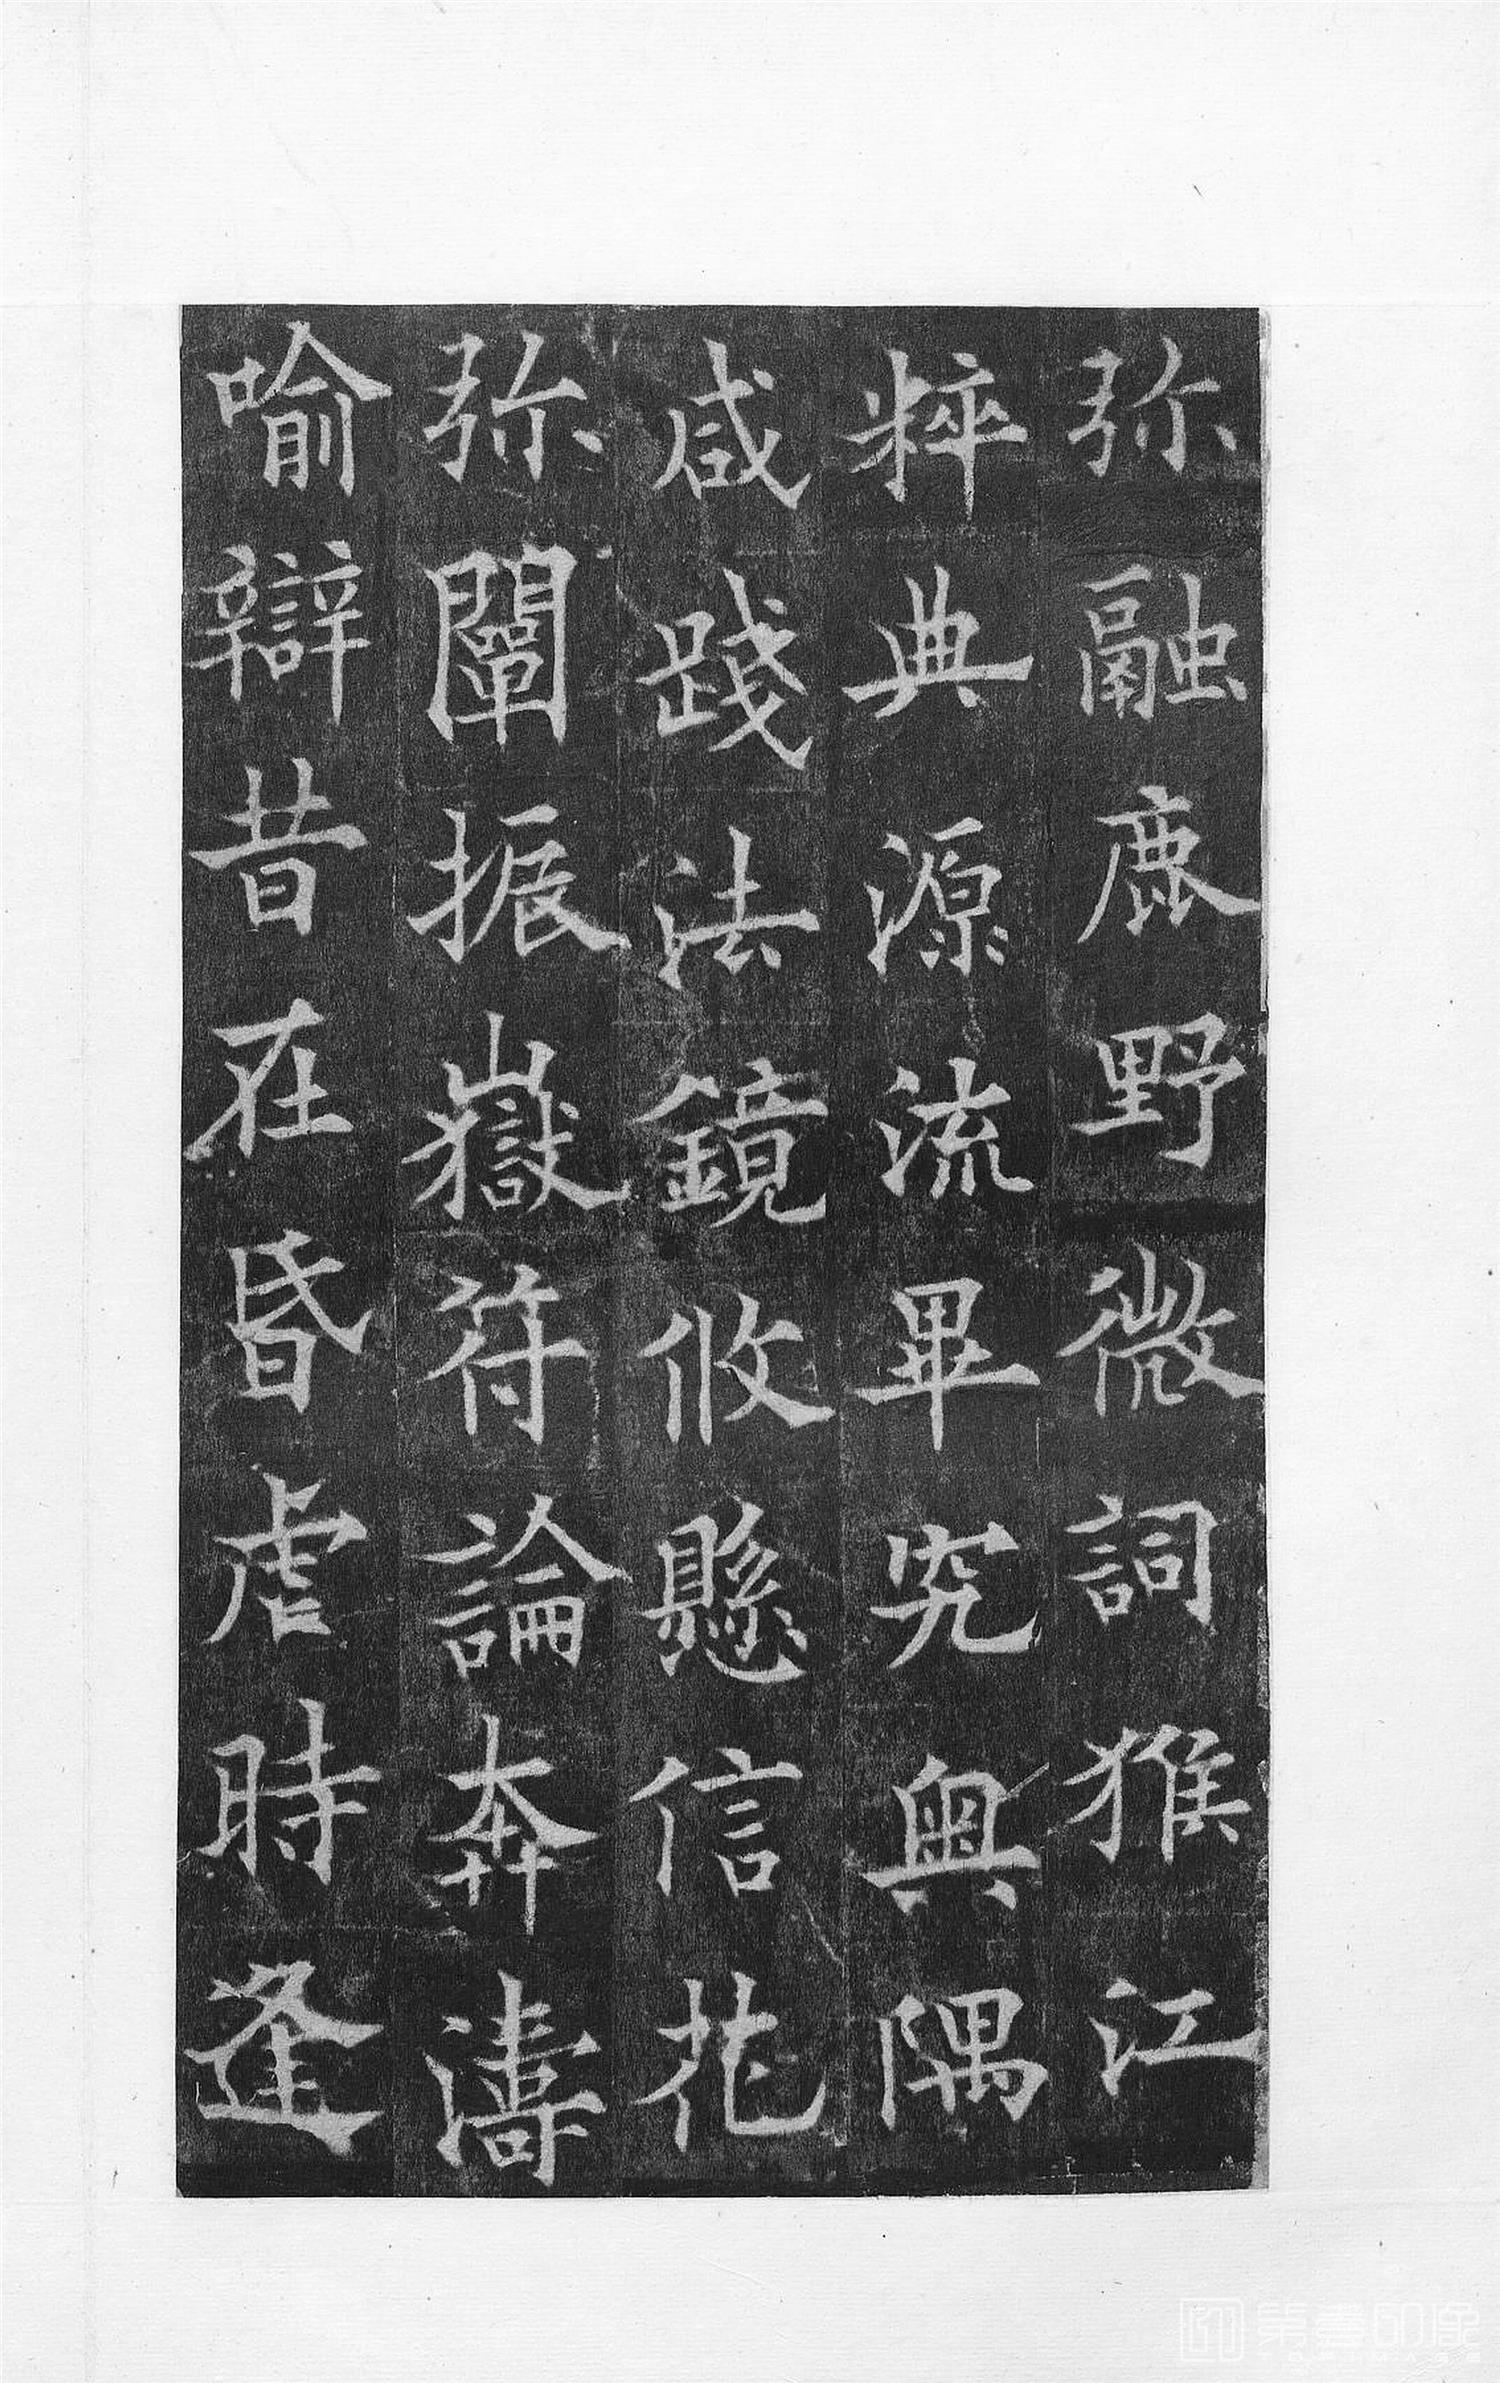 弥融鹿野微詞猴江
粹典源流畢究奥隅
咸踐法鏡攸懸信花
弥闡振嶽符論奔濤
喻辯昔在昏虐時逢
第壹印像